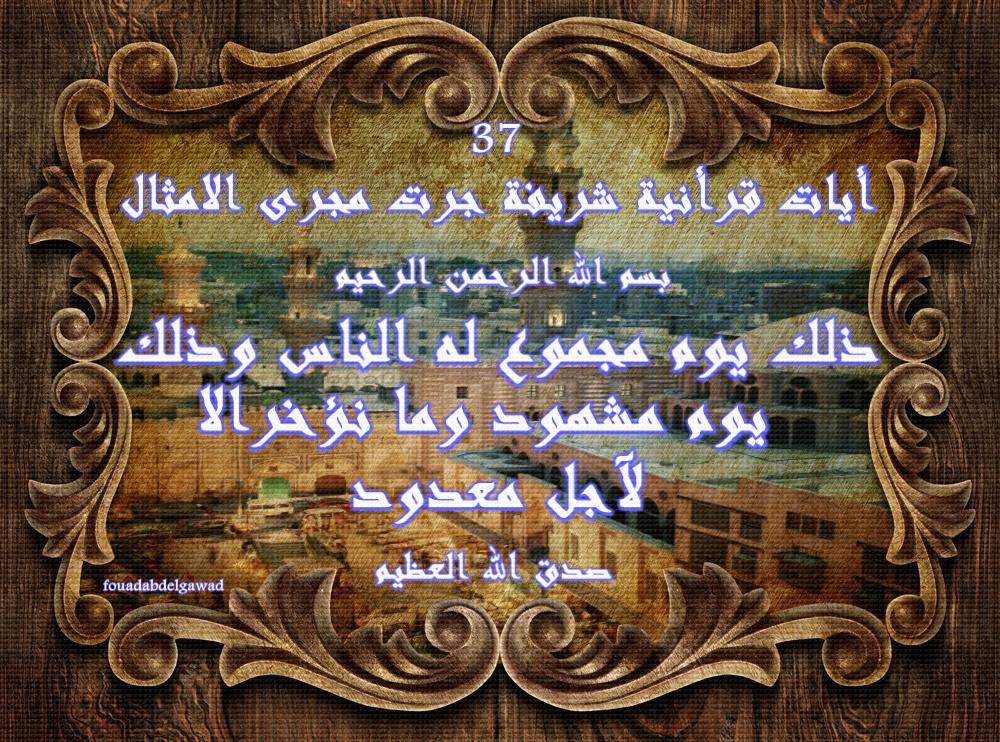 37
أيات قرأنية شريفة جرت مجرى الامثال
بسم الله الرحمن الرحيم
ذلك يوم مجموع له الناس وذلك
يوم مشهود وما نؤخرالا
لآجل معدود
صدق الله العظيم
fouadabdelgawad